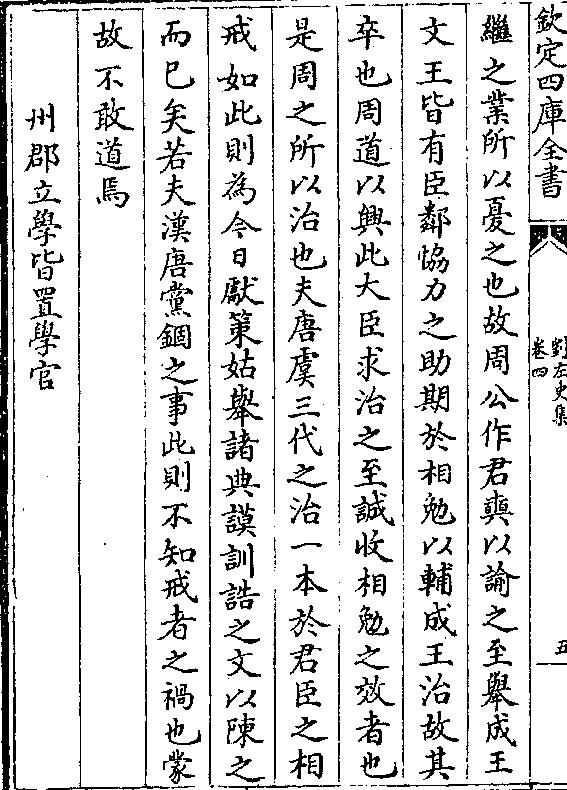 欽定四庫全書
劉左史集
卷四
五
繼之業所以憂之也故周公作君奭以諭之至舉成王
文王皆有臣鄰恊力之助期於相勉以輔成王治故其
卒也周道以興此大臣求治之至誠收相勉之效者也
是周之所以治也夫唐虞三代之治一本於君臣之相
戒如此則為今日獻策姑舉諸典謨訓誥之文以陳之
而已矣若夫漢唐黨錮之事此則不知戒者之禍也蒙
故不敢道焉
州郡立學皆置學官